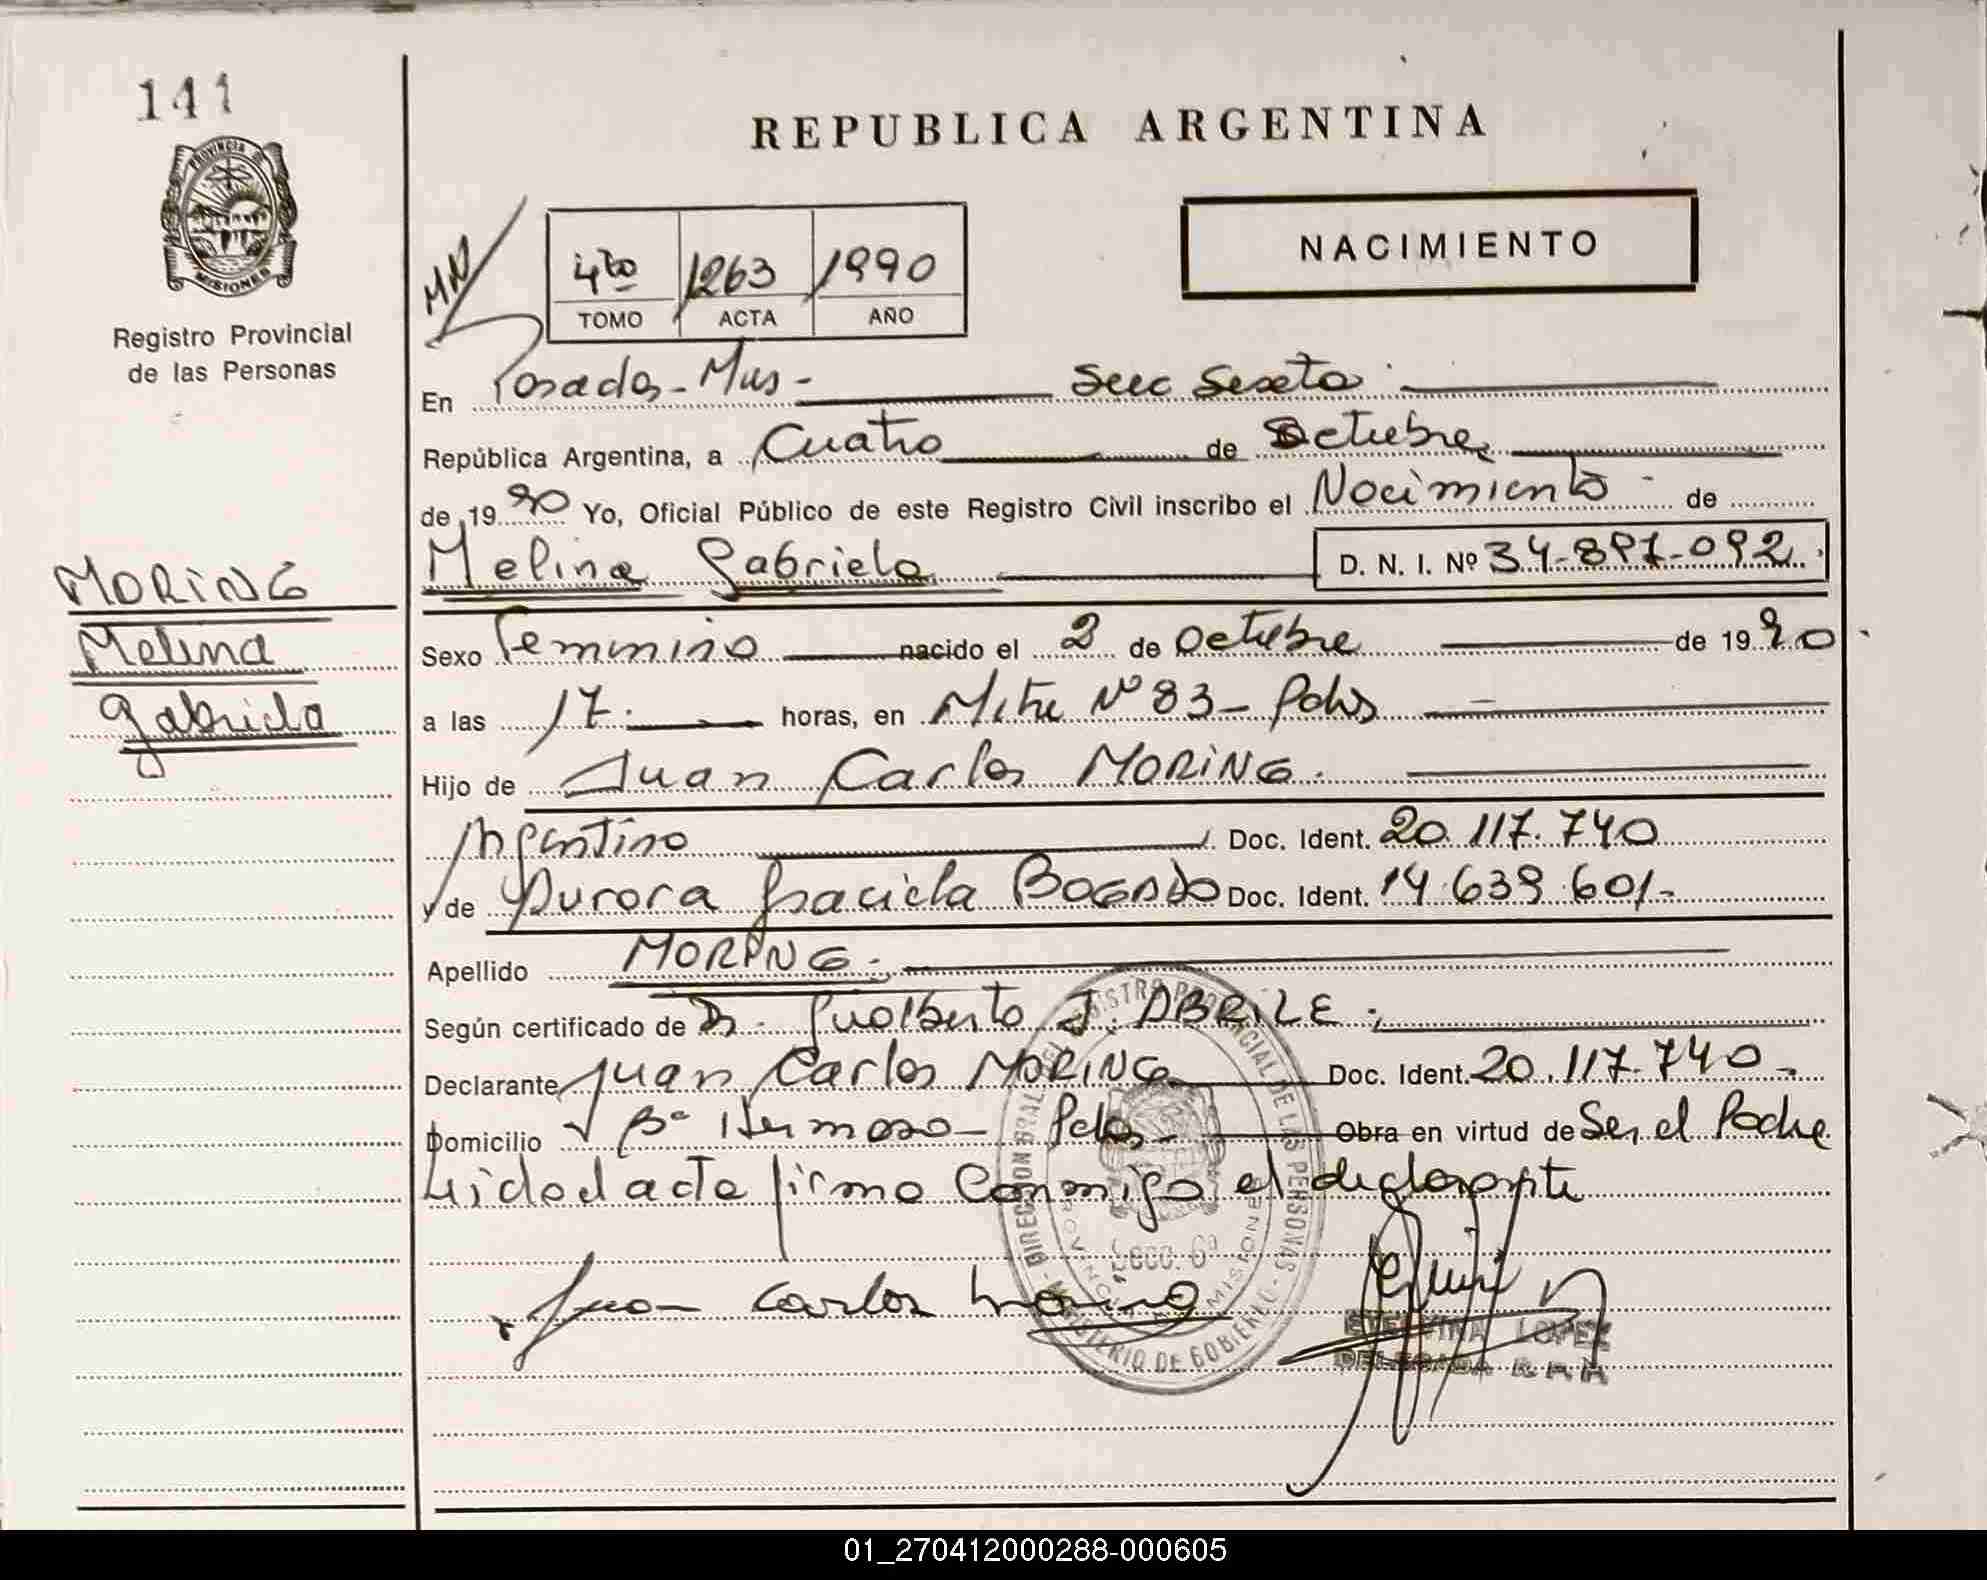 141
PROVINCIA DE
MISIONES
Registro Provincial
de las Personas
REPUBLICA ARGENTINA
NACIMIENTO
4to 1263 1990
TOMO ACTA AÑO
En Posadas - Mnes - Secc Sexta
República Argentina, a Cuatro de Octubre
de 1990 Yo, Oficial Público de este Registro Civil inscribo el Nacimiento de
Melina Gabriela D. N. I. Nº 34-897-092
MORING
Melina
Gabriela
Sexo Femenino nacido el 2 de Octubre de 1990
a las 17 horas, en Mitre Nº 83 - Pdas
Hijo de Juan Carlos MORING
Argentino Doc. Ident. 20.117.740
y de Aurora Graciela BOGADO Doc. Ident. 14.639.601-
Apellido MORING.
Según certificado de Dr. Gualberto J. ABRILE
Declarante Juan Carlos MORING Doc. Ident. 20.117.740-
Domicilio Bº Hermoso - Pdas - Obra en virtud de Ser el Padre
Leida el acta firma conmigo el declarante
DIRECCION GRAL. DEL REGISTRO PROVINCIAL DE LAS PERSONAS
MINISTERIO DE GOBIERNO
PROVINCIA MISIONES
SECC. 6ª
Juan Carlos Moring
ETELVINA LOPEZ
DELEGADA
01_270412000288-000605